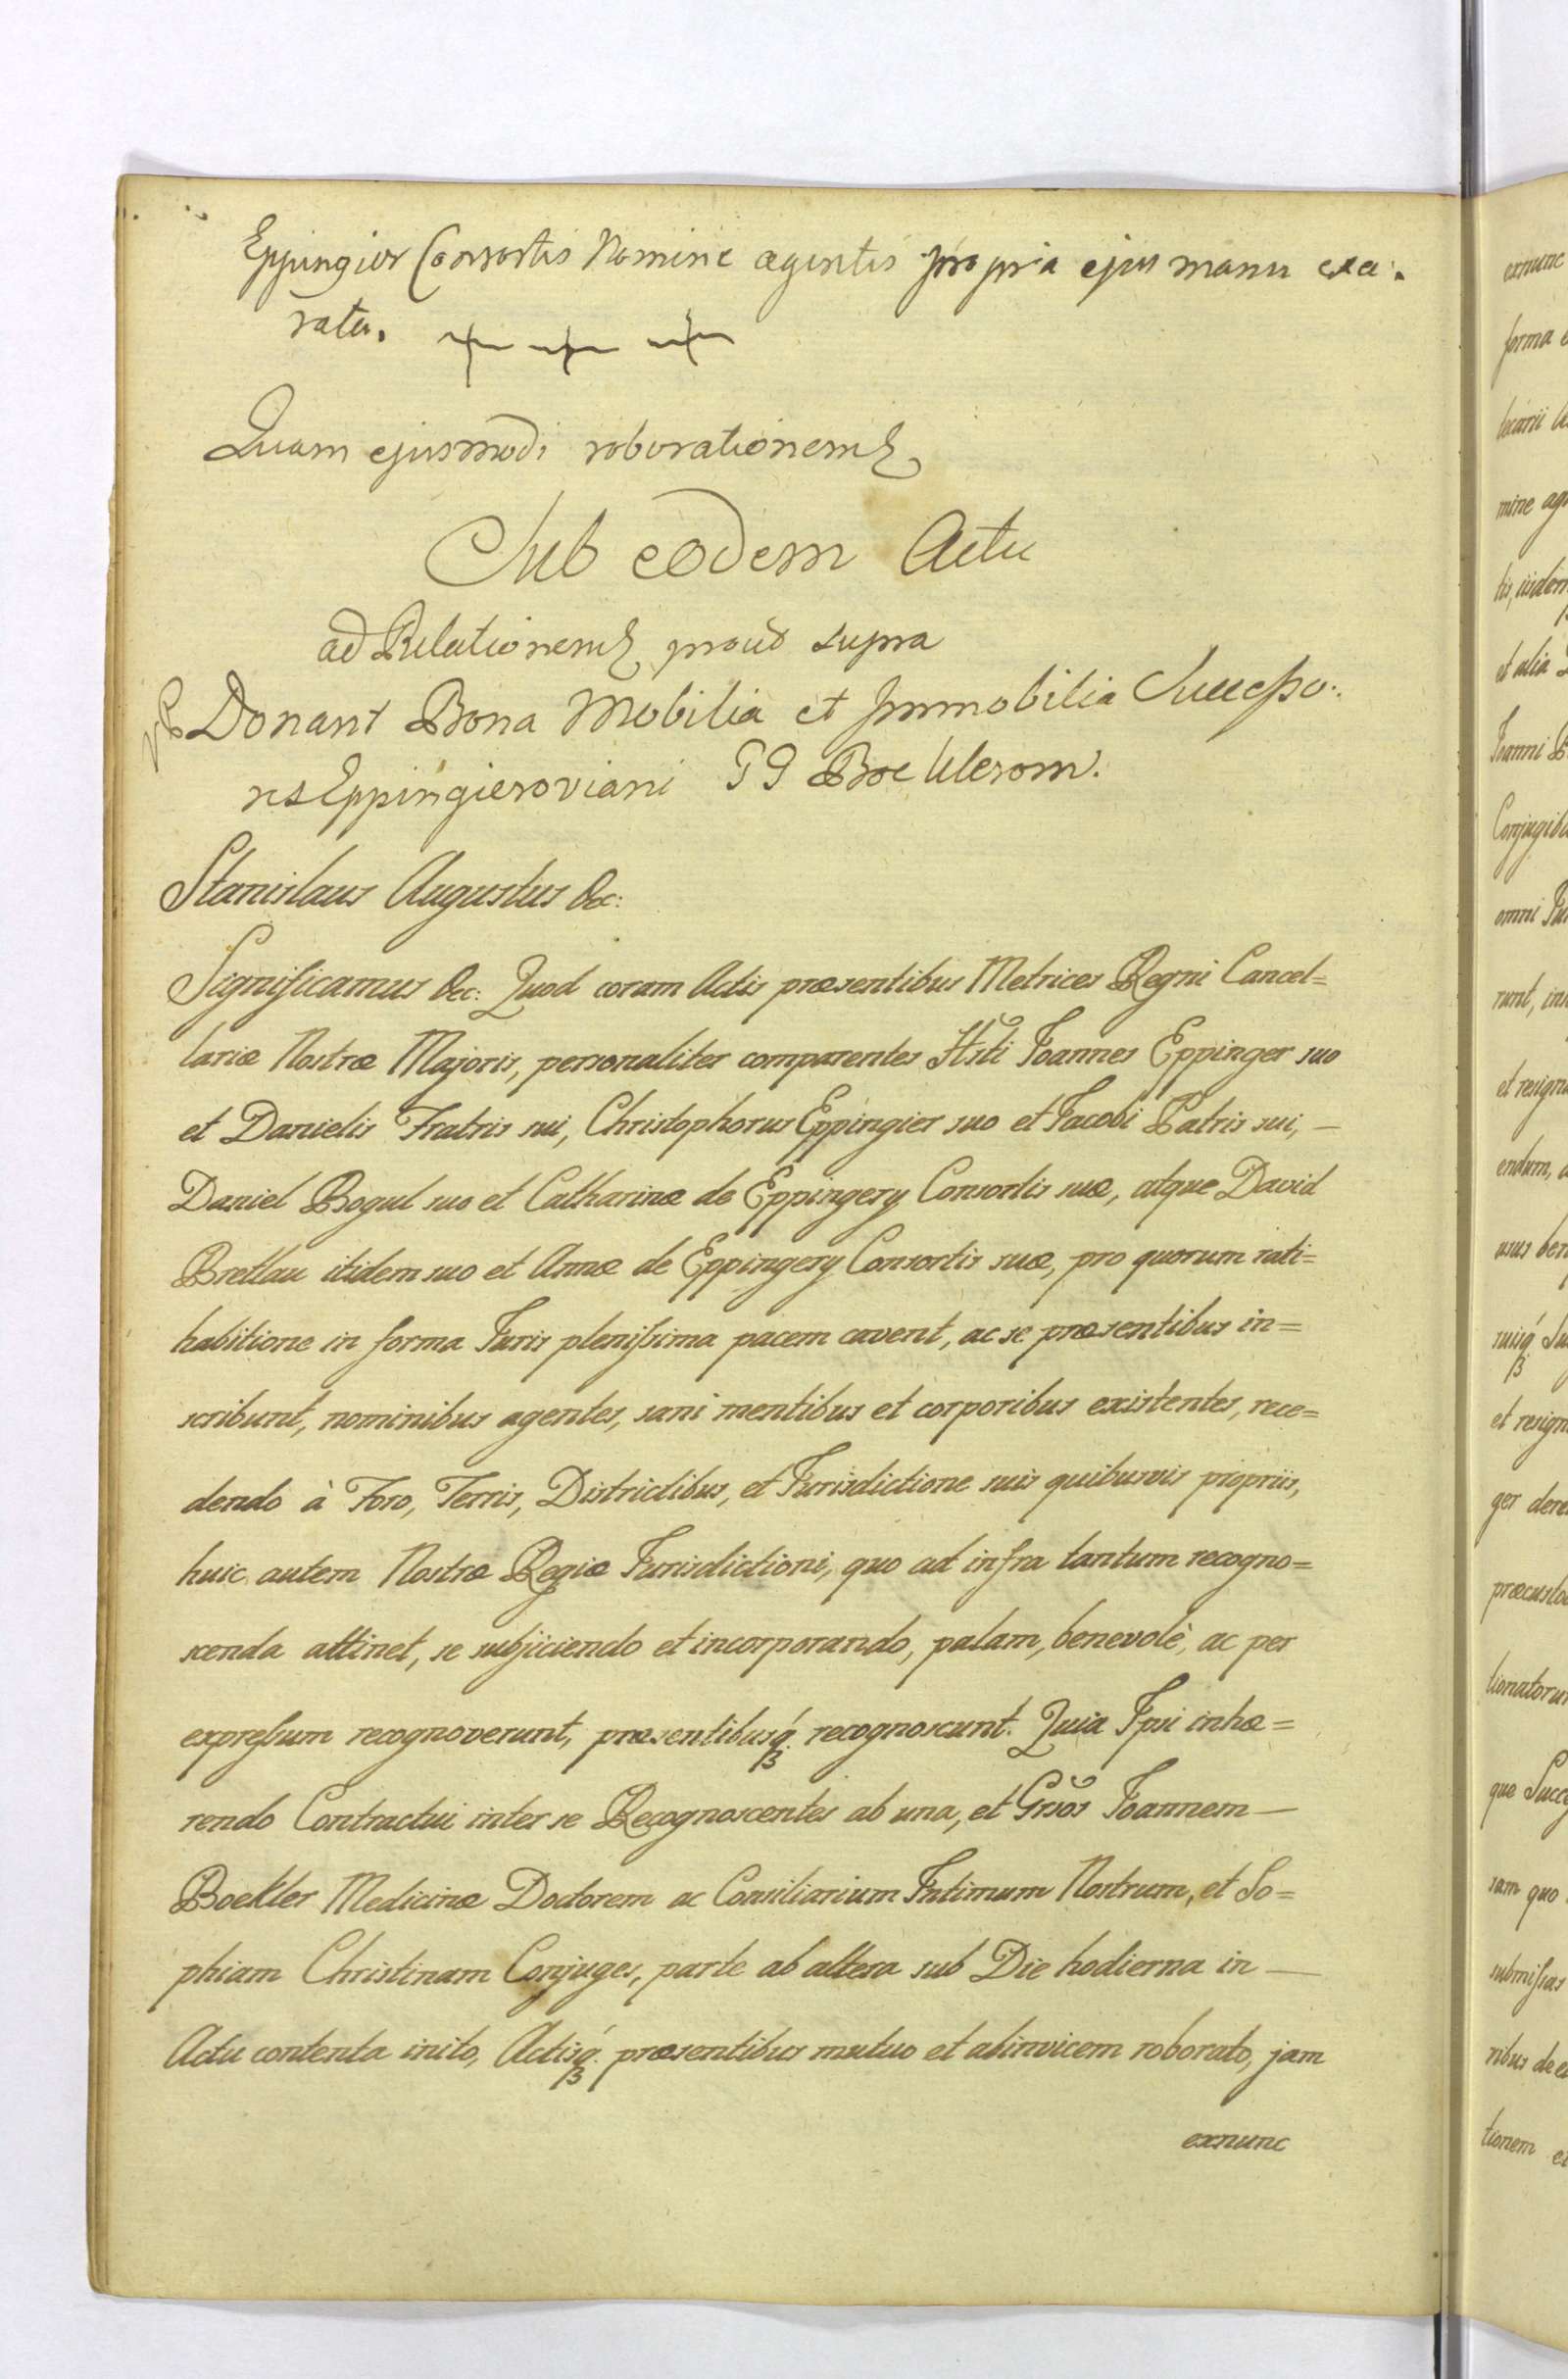 Eppingier Consortis Nomine agentis propria ejus manu exa:
rata.
Quam ejusmodi roborationem
Sub eodem Actu
ad Relationem prout supra
Donant Bona Mobilia et Immobilia Successo:
res Eppingieroviani GG Boeklerom.
Stanislaus Augustus &c:
Significamus &c: Quod coram Actis præsentibus Metrices Regni Cancel=
lariæ Nostræ Majoris, personaliter comparentes Hsti Joannes Eppinger suo
et Danielis Fratris sui, Christophorus Eppingier suo et Jacobi Patris sui, —
Daniel Bogul suo et Catharinæ de Eppingery Consortis suæ, atque David
Bretlau itidem suo et Annæ de Eppingery Consortis suæ, pro quorum rati=
habitione in forma Juris plenißima pacem cavent, ac se præsentibus in=
scribunt, nominibus agentes, sani mentibus et corporibus existentes, rece=
dendo à Foro, Terris, Districtibus, et Jurisdictione suis quibusvis propriis,
huic autem Nostræ Regiæ Jurisdictioni, quo ad infra tantum recogno=
scenda attinet, se subjiciendo et incorporando, palam, benevolè, ac per
expreßum recognoverunt, præsentibusq́ recognoscunt. Quia Ipsi inhæ=
rendo Contractui inter se Recognoscentes ab una, et Grsos Joannem —
Boekler Medicinæ Doctorem ac Consiliarium Intimum Nostrum, et So=
phiam Christinam Conjuges, parte ab altera sub Die hodierna in —
Actu contenta inito, Actisq́ præsentibus mutuo et abinvicem roborato, jam
exnunc
exnunc
forma
locarii
mine
et alia
Joanni
omni
runt,
endum,
usus
suisq́
ger
que
sam quo
submißas
ribus
tionem